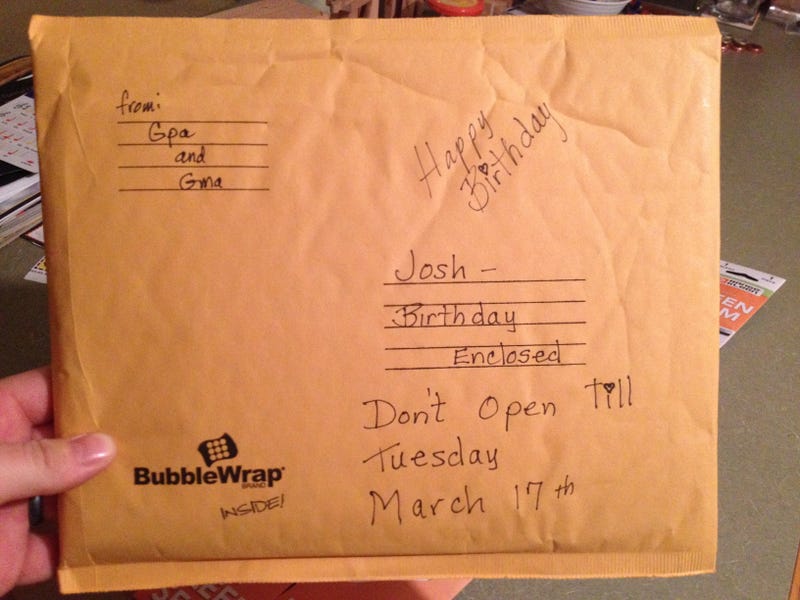 from:
Gpa
and
Gma
Happy
Birthday
Josh -
Birthday
Enclosed
Don't Open Till
Tuesday
March 17th
BubbleWrap
BRAND
INSIDE!